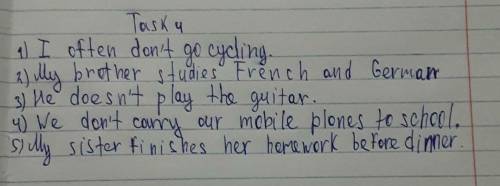 Task 4
1) I often don't go cycling.
2) My brother studies French and German
3) He doesn't play the guitar.
4) We don't carry our mobile plones to school.
5) My sister finishes her homework before dinner.